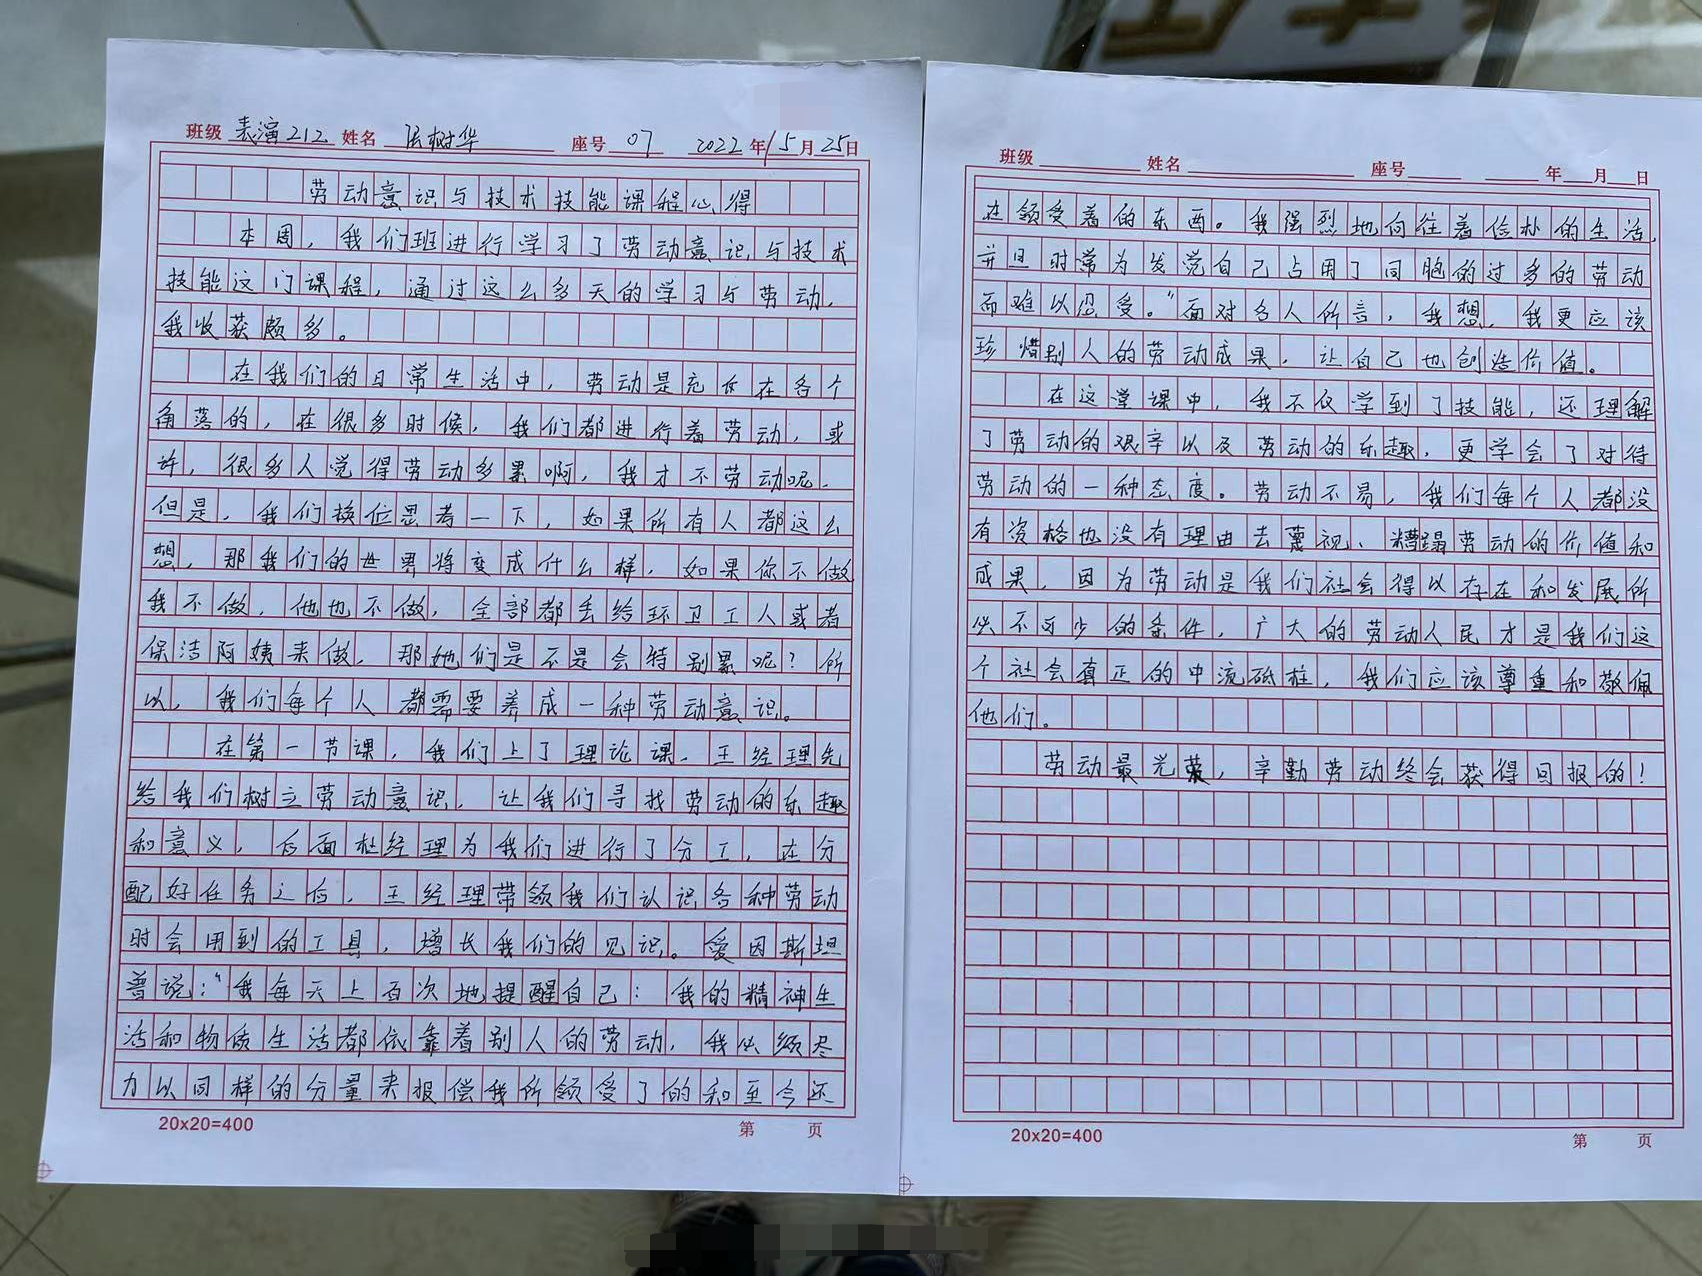 班级 表演212 姓名 张树华 座号 07 2022年5月25日
劳动意识与技术技能课程心得
本周，我们班进行学习了劳动意识与技术
技能这门课程，通过这么多天的学习与劳动，
我收获颇多。
在我们的日常生活中，劳动是充斥在各个
角落的，在很多时候，我们都进行着劳动，或
许，很多人觉得劳动多累啊，我才不劳动呢，
但是，我们换位思考一下，如果所有人都这么
想，那我们的世界将变成什么样，如果你不做
我不做，他也不做，全部都丢给环卫工人或者
保洁阿姨来做，那她们是不是会特别累呢？所
以，我们每个人都需要养成一种劳动意识。
在第一节课，我们上了理论课，王经理先
给我们树立劳动意识，让我们寻找劳动的乐趣
和意义，后面杜经理为我们进行了分工，在分
配好任务之后，王经理带领我们认识各种劳动
时会用到的工具，增长我们的见识。爱因斯坦
曾说：“我每天上百次地提醒自己：我的精神生
活和物质生活都依靠着别人的劳动，我必须尽
力以同样的分量来报偿我所领受了的和至今还
20x20=400 第 页
班级 姓名 座号 年 月 日
在领受着的东西。我强烈地向往着俭朴的生活，
并且时常为发觉自己占用了同胞的过多的劳动
而难以忍受。”面对名人所言，我想，我更应该
珍惜别人的劳动成果，让自己也创造价值。
在这堂课中，我不仅学到了技能，还理解
了劳动的艰辛以及劳动的乐趣，更学会了对待
劳动的一种态度。劳动不易，我们每个人都没
有资格也没有理由去蔑视、糟蹋劳动的价值和
成果，因为劳动是我们社会得以存在和发展所
必不可少的条件，广大的劳动人民才是我们这
个社会真正的中流砥柱，我们应该尊重和敬佩
他们。
劳动最光荣，辛勤劳动终会获得回报的！
20x20=400 第 页